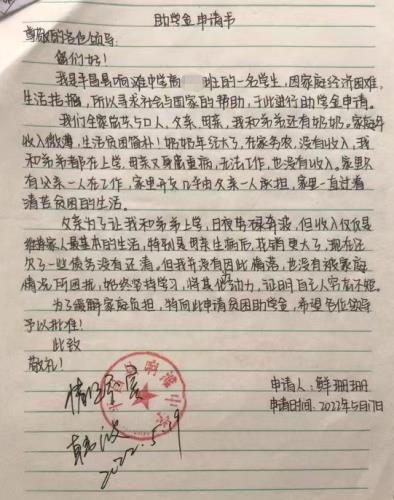 助学金申请书
尊敬的各位领导:
您们好!
我是平昌县响滩中学 班的一名学生,因家庭经济困难,
生活拮据,所以寻求社会与国家的帮助,于此进行助学金申请。
我们全家总共5口人,父亲,母亲,我和弟弟还有奶奶。家庭年
收入微薄,生活贫困偏朴!奶奶年纪大了,在家务农,没有收入,我
和弟弟都在上学,母亲又身患重病,无法工作,也没有收入。家里只
有父亲一人在工作,家里开支几乎由父亲一人承担,家里一直过着
清苦贫困的生活。
父亲为了让我和弟弟上学,日夜奔碌奔波,但收入仅仅是
维持家人最基本的生活,特别是母亲生病后,花销更大了,现在还
欠了一些债务没有还清。但我并没有因此堕落,也没有被家庭
情况所困扰,始终坚持学习,将其化为动力,证明自己人穷志不短。
为了缓解家庭负担,特向此申请贫困助学金,希望各位领导
予以批准!
此致
敬礼!
情况属实
申请人:鲜珊珊
申请时间:2022年5月17日
2022.5.19